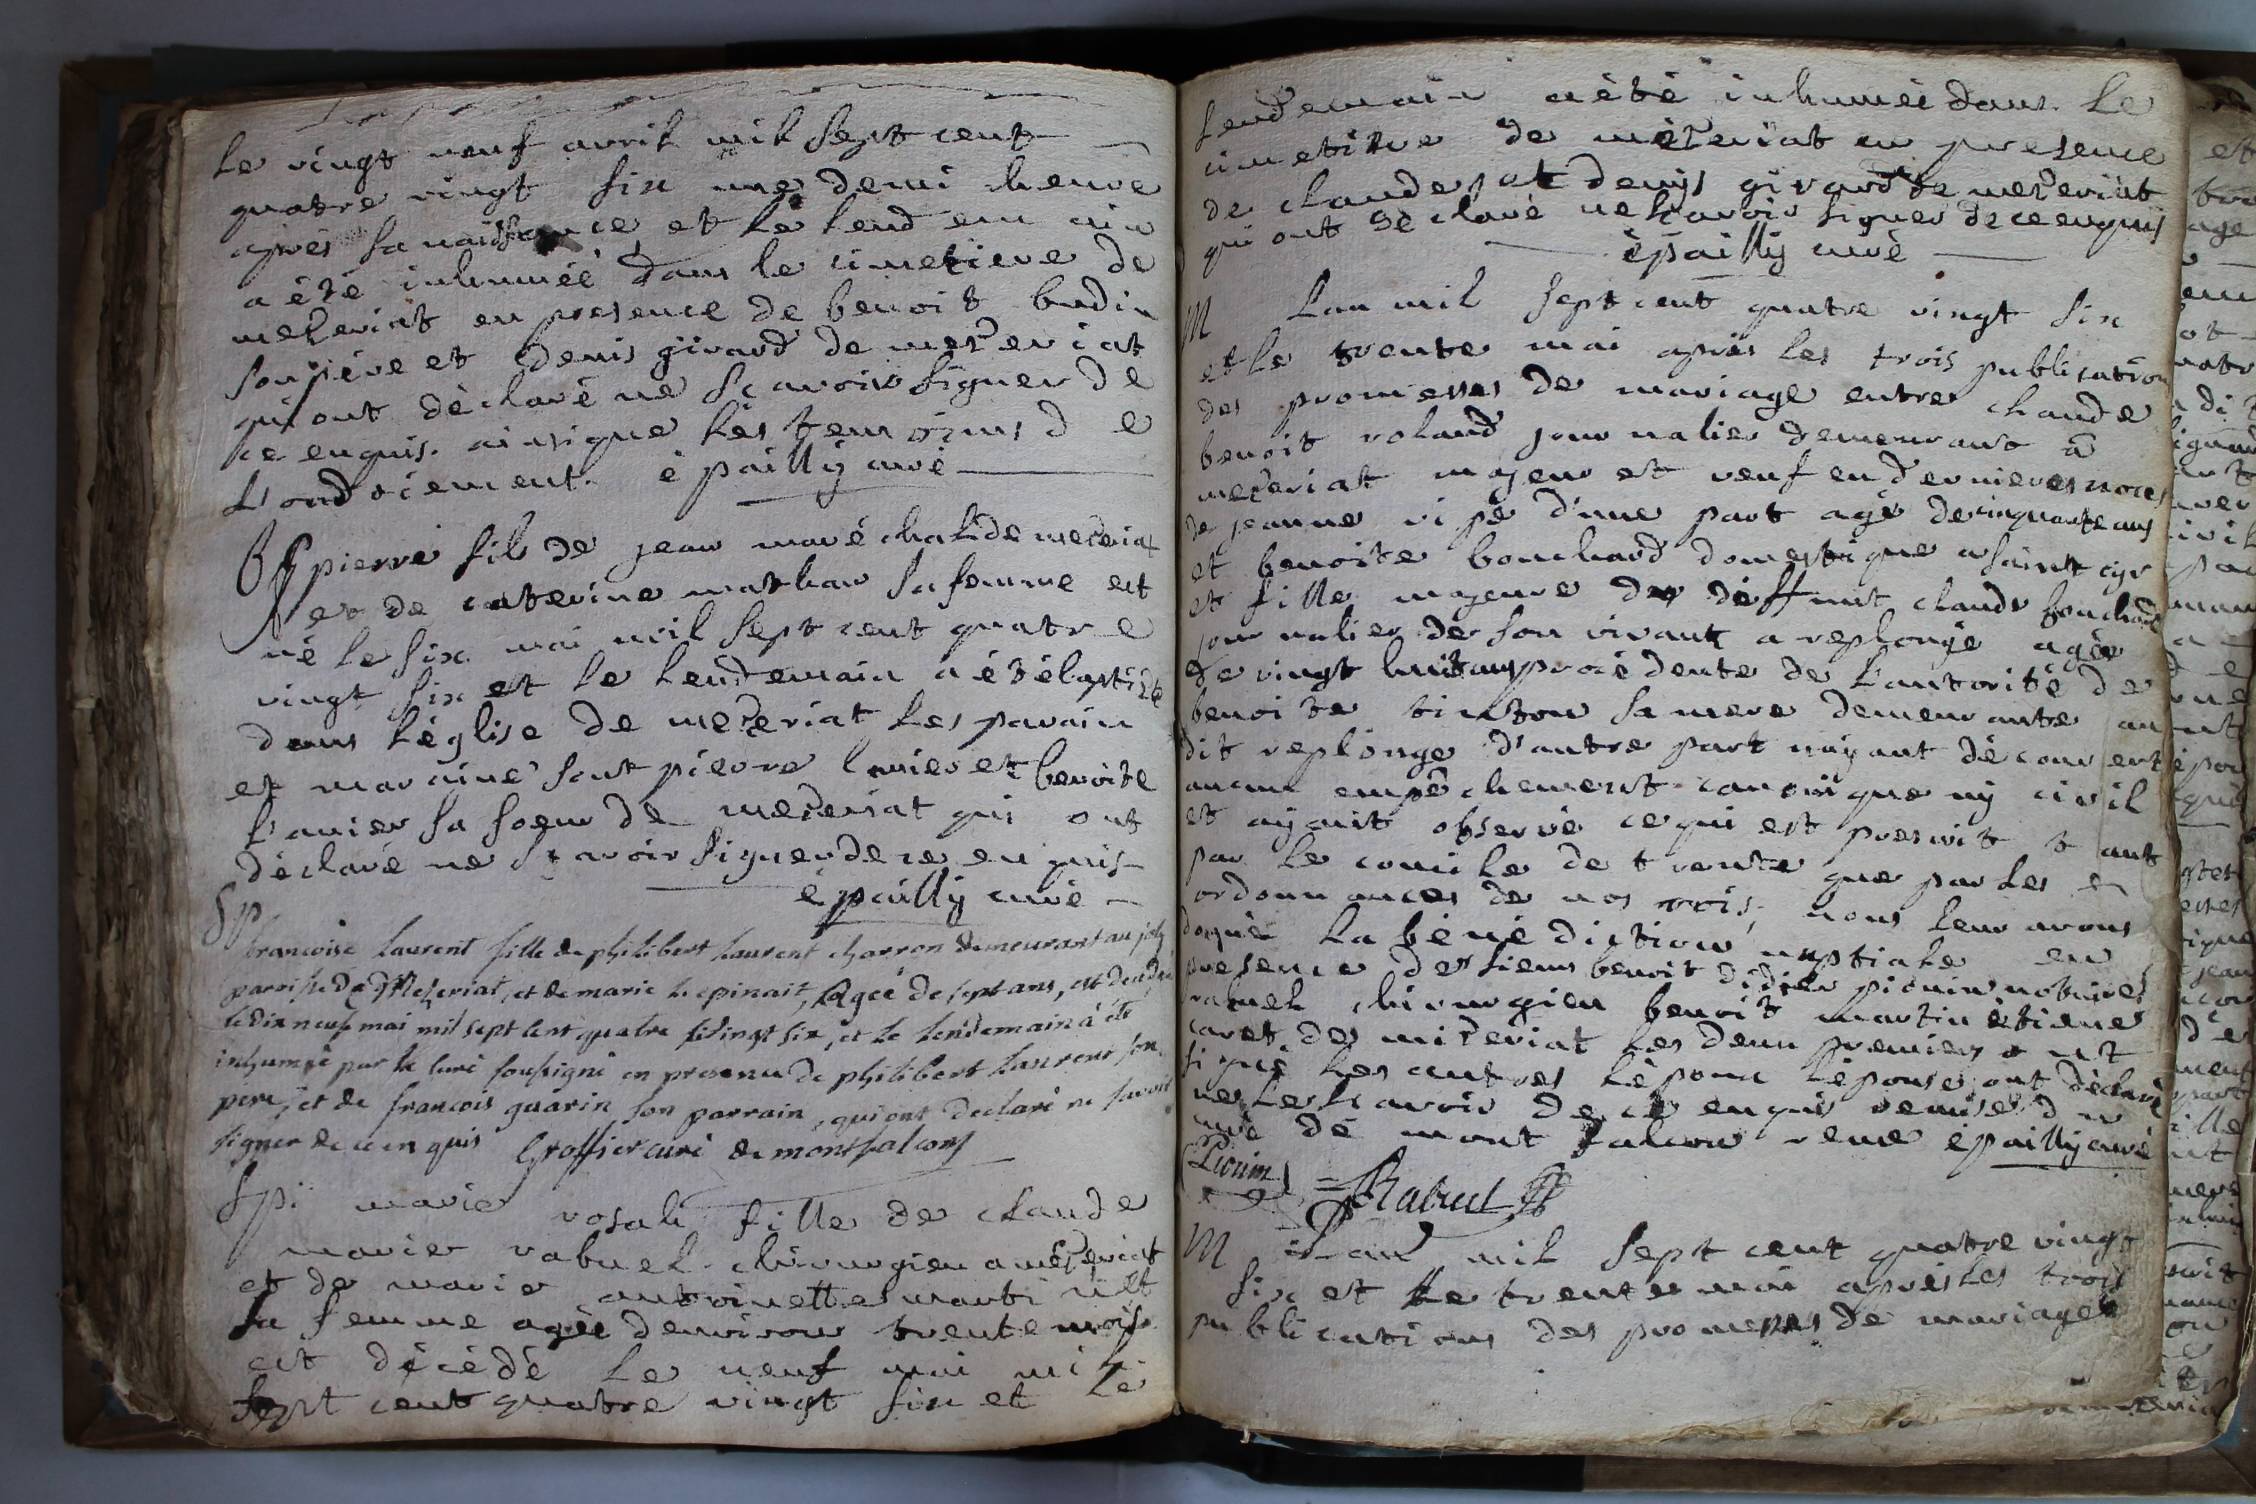 le vingt neuf avril mil sept cent
quatre vingt six une demi heure
après sa naissance et le lendemain
a été inhumée dans le cimetiere de
mezeriat en presence de benoit budin
son père et denis girard de mezeriat
qui ont déclaré ne sçavoir signer de
ce enquis. ainsique les temoins de
l'ondoiement. épailly curé
B pierre fils de jean maréchal de mezeriat
et de caterine mathau sa femme est
né le six mai mil sept cent quatre
vingt six et le lendemain a été baptisé
dans l'église de mezeriat les parain
et maraine sont pierre lanier et benoite
lanier sa soeur de mezeriat qui ont
déclaré ne sçavoir signer de ce enquis
épailly curé
Sp
francoise laurent fille de philibert laurent charron demeurant au joly
paroisse de Mezeriat, et de marie lepinait, agée de sept ans, est decedée
le dix neuf mai mil sept cent quatre vingt six, et le lendemain a été
inhumée par le curé soussigné en presence de philibert laurent son
pere, et de francois guérin son parrain, qui ont declaré ne savoir
signer de ce enquis Groffier curé de montfalcon
Sp marie rosali fille de claude
marie rabuel chirurgien a mezeriat
et de marie antoinette martinet
sa femme agée denviron trente mois
est décédé le neuf mai mil
sept cent quatre vingt six et le
lendemain a été inhumée dans le
cimetiere de mezeriat en presence
de claude et denys girard de mezeriat
qui ont déclaré ne sçavoir signer de ce enquis
épailly curé
M Lan mil sept cent quatre vingt six
et le trente mai après les trois publication
des promesses de mariage entre claude
benoit roland journalier demeurant à
mezeriat majeur et veuf en dernieres noces
de jeanne vipé d'une part agé de cinquante ans
et benoite bouchard domestique a saint cyr
et fille majeure de déffunt claude bouchard
journalier de son vivant a replonge agée
de vingt huit ans procédente de l'autorité de
benoite tinton sa mere demeurante au
dit replonge d'autre part nayant découvert
aucun empêchement canonique ny civil
et ayant observé ce qui est prescrit tant
par le concile de trente que par les
ordonnances de nos rois, nous leur avons
donné la bénédiction nuptiale en
presence des sieurs benoit didier picuin notaire
rabuel chirurgien benoit martin étiene
caret de mezeriat les deux premiers ont
signé les autres l'époux l'épouse ont déclaré
ne le sçavoir de ce enquis remise du
curé de mont falcon veue épailly curé
Picuin Rabuel
M Lan mil sept cent quatre vingt
six et le trente mai après les trois
publications des promesses de mariage